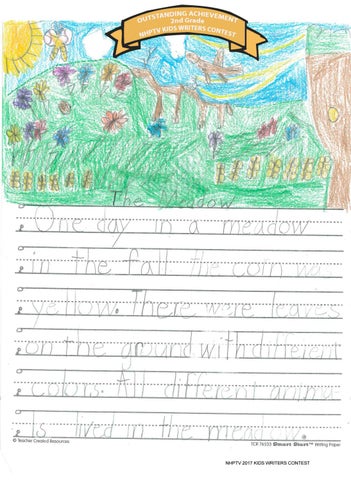 OUTSTANDING ACHIEVEMENT
2nd Grade
NHPTV KIDS WRITERS CONTEST
The Meadow
One day in a meadow
in the fall the corn wa
yellow. There were leaves
on the ground with different
colors. All different anima
ls lived in the meadow.
© Teacher Created Resources
TCR 76553 Smart Start™ Writing Paper
NHPTV 2017 KIDS WRITERS CONTEST